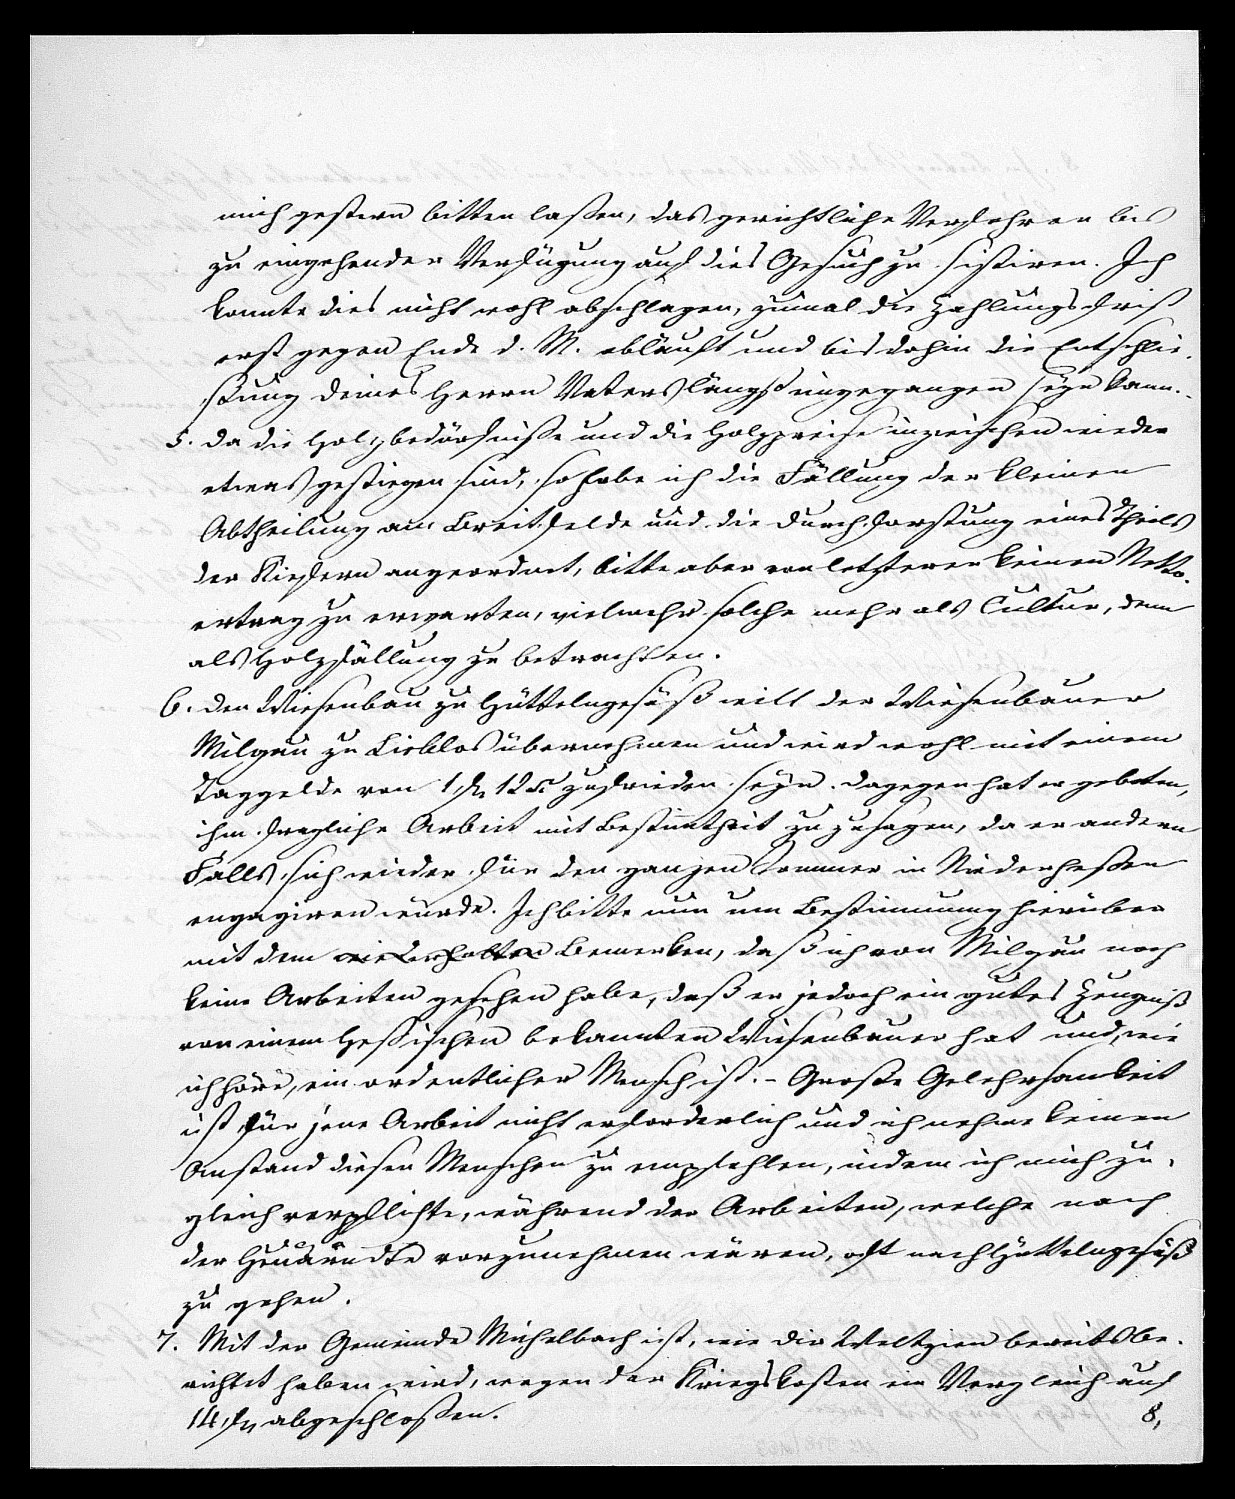 mich gestern bitten laßen, das gerichtliche Verfahren bis
zu eingehender Verfügung auf dies Gesuch zu sistiren. Ich
konnte dies nicht wohl abschlagen, zumal die Zahlungsfrist
erst gegen Ende d. M. abläuft und bis dahin die Entschlie-
ßung deines Herrn Vaters längst eingegangen seyn kann.
5. Da die Holzbedürfniße und die Holzpreise inzwischen wieder
etwas gestiegen sind, so habe ich die Fällung der kleinen
Abtheilung am Breitefelde und die Durchforstung eines Theils
der Kiefern angeordnet, bitte aber von letzterer keinen Netto-
ertrag zu erwarten, vielmehr solche mehr als Cultur, denn
als Holzfällung zu betrachten.
6. Den Wiesenbau zu Hüttelngesäß will der Wiesenbauer
Milgau zu Lieblos übernehmen und wird wohl mit einem
Taggelde von 1 f 12 x zufrieden seyn. Dagegen hat er gebeten,
ihm fragliche Arbeit mit Bestimtheit zuzusagen, da er andern
Falls sich wieder für den ganzen Sommer in Niederheßen
engagiren würde. Ich bitte nun um Bestimmung hierüber
mit dem Bemerken, daß ich von Milgau noch
keine Arbeiten gesehen habe, daß er jedoch ein gutes Zeugniß
von einem Heßischen bekannten Wiesenbauer hat und, wie
ich höre, ein ordentlicher Mensch ist. – Große Gelehrsamkeit
ist für jene Arbeit nicht erforderlich und ich nehme keinen
Anstand diesen Menschen zu empfehlen, indem ich mich zu-
gleich verpflichte, während der Arbeiten, welche nach
der Heuärndte vorzunehmen wären, oft nach Hüttelngesäß
zu gehen.
7. Mit der Gemeinde Michelbach ist, wie dir Weltzien bereits be-
richtet haben wird, wegen der Kriegskosten ein Vergleich auf
14 f abgeschloßen.
8,